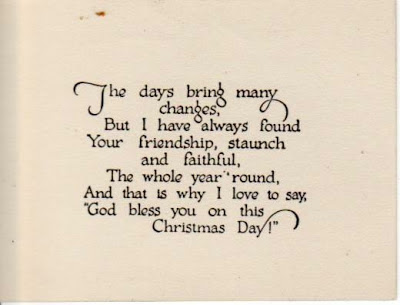 The days bring many
changes,
But I have always found
Your friendship, staunch
and faithful,
The whole year 'round,
And that is why I love to say,
"God bless you on this
Christmas Day!"